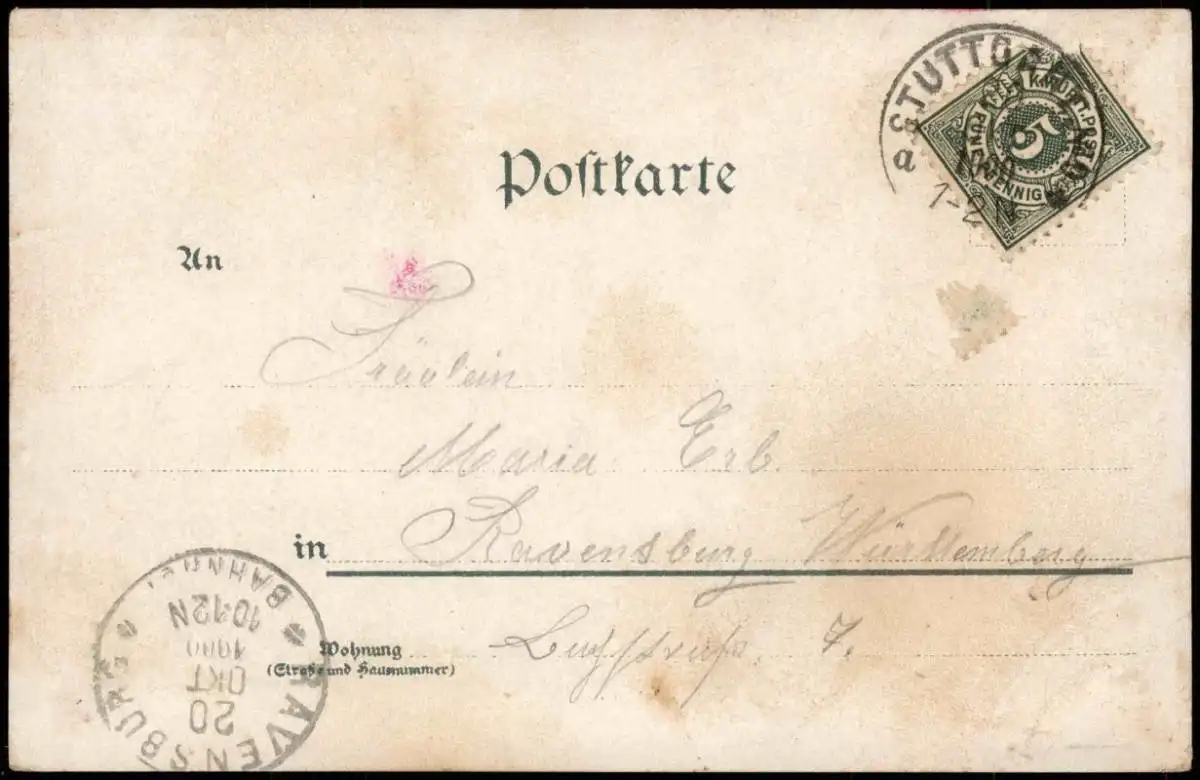 Postkarte
STUTTG
a
1-2 N
K.WÜRTT.POST
5
FÜNF PFENNIG
An
Fräulein
Maria Erb.
in Ravensburg Württemberg
Wohnung
(Straße und Hausnummer)
7.
RAVENSBURG
20
OKT
1900
10-12N
BAHNHOF